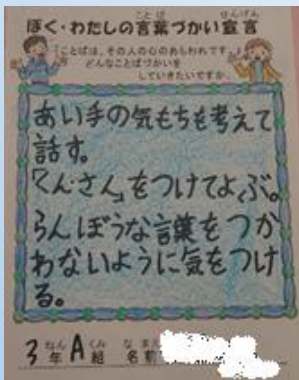 ぼく・わたしの言葉づかい宣言
ことばは、その人の心のあらわれです。
どんなことばづかいを
していきたいですか。
あい手の気もちを考えて
話す。
「くん・さん」をつけてよぶ。
らんぼうな言葉をつか
わないように気をつけ
る。
3年A組 名前